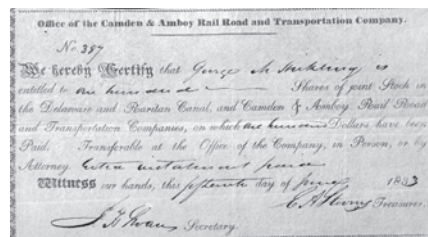 Office of the Camden & Amboy Rail Road and Transportation Company.
No. 387
We hereby Certify that George M Hickling is
entitled to one hundred Shares of joint Stock in
the Delaware and Raritan Canal, and Camden & Amboy Rail Road
and Transportation Companies, on which one hundred Dollars have been
Paid. Transferable at the Office of the Company, in Person, or by
Attorney
Witness our hands, this fifteenth day of June 1833
Treasurer.
Secretary.